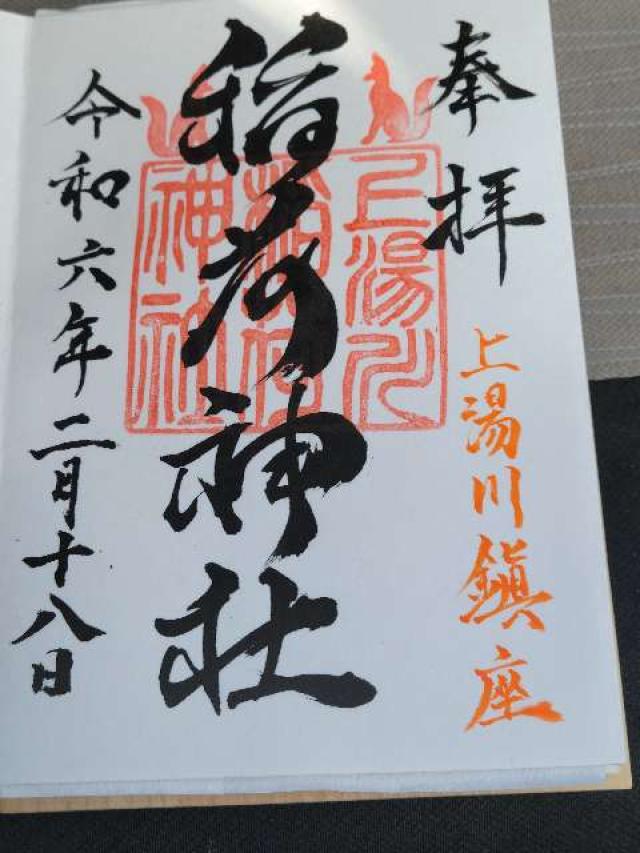 奉拝
上湯川鎮座
稲荷神社
上湯川
稲荷
神社
令和六年二月十八日